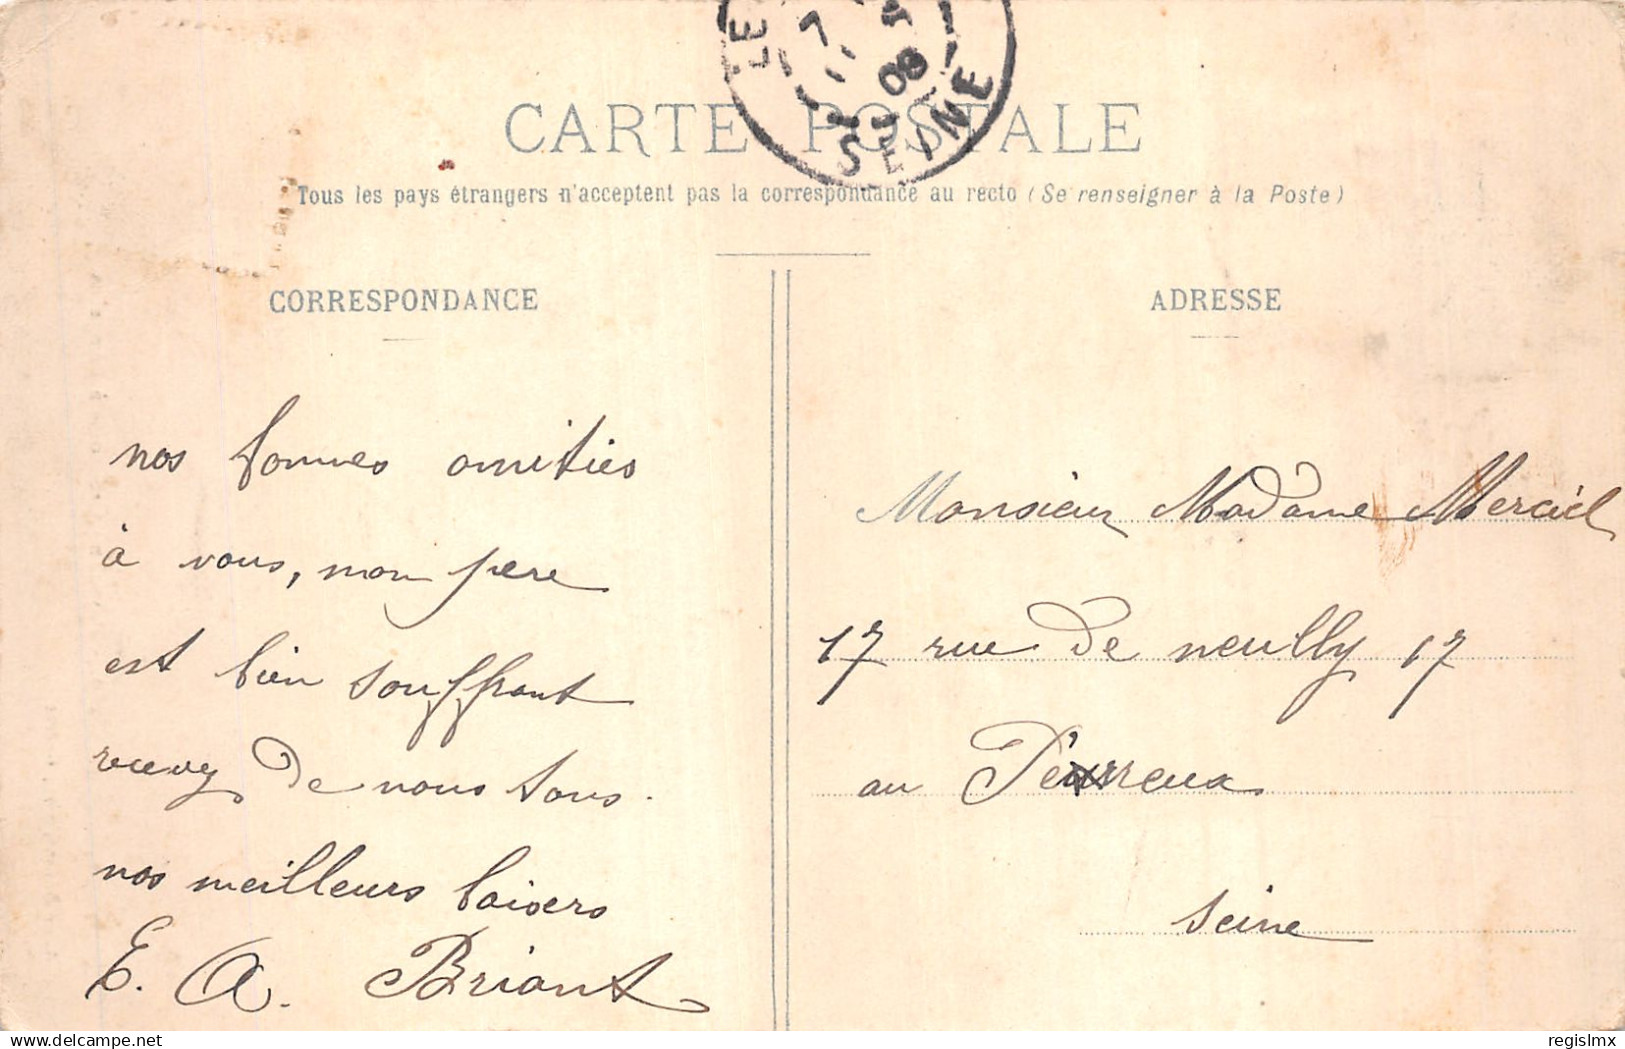 LE
7
11
08
SEINE
CARTE POSTALE
Tous les pays étrangers n'acceptent pas la correspondance au recto (Se renseigner à la Poste)
CORRESPONDANCE
nos bonnes amitiés
à vous, mon pere
est bien souffrant
recevez de nous tous.
nos meilleurs baisers
E. A. Briant
ADRESSE
Monsieur Madame Merciél
17 rue de neuilly 17
au Péurreux
Seine
www.delcampe.net
regislmx